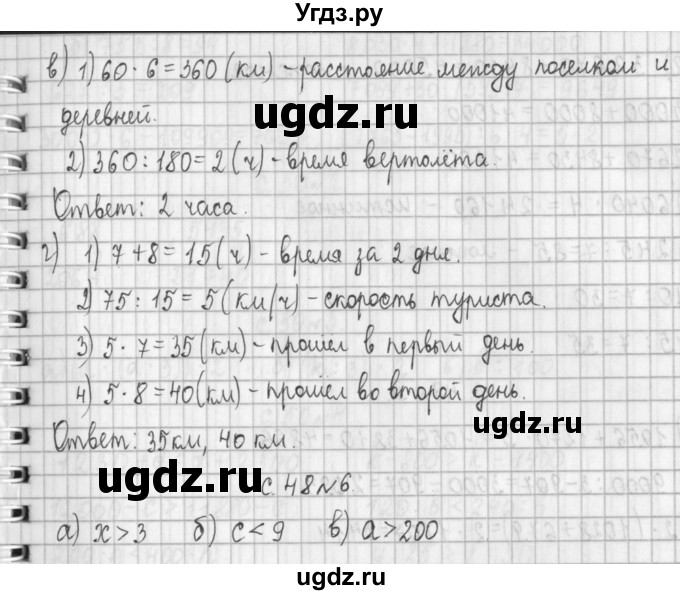 Угдз.ру
в) 1) 60 · 6 = 360 (км) - расстояние между поселком и
деревней.
ugdz.ru
2) 360 : 180 = 2 (ч) - время вертолёта.
Ответ: 2 часа.
г) 1) 7 + 8 = 15 (ч) - время за 2 дня.
2) 75 : 15 = 5 (км/ч) - скорость туриста.
3) 5 · 7 = 35 (км) - прошёл в первый день.
4) 5 · 8 = 40 (км) - прошёл во второй день.
ugdz.ru
Ответ: 35 км, 40 км.
ugdz.ru
с. 48 №6
а) x > 3 б) c < 9 в) a > 200
ugdz.ru